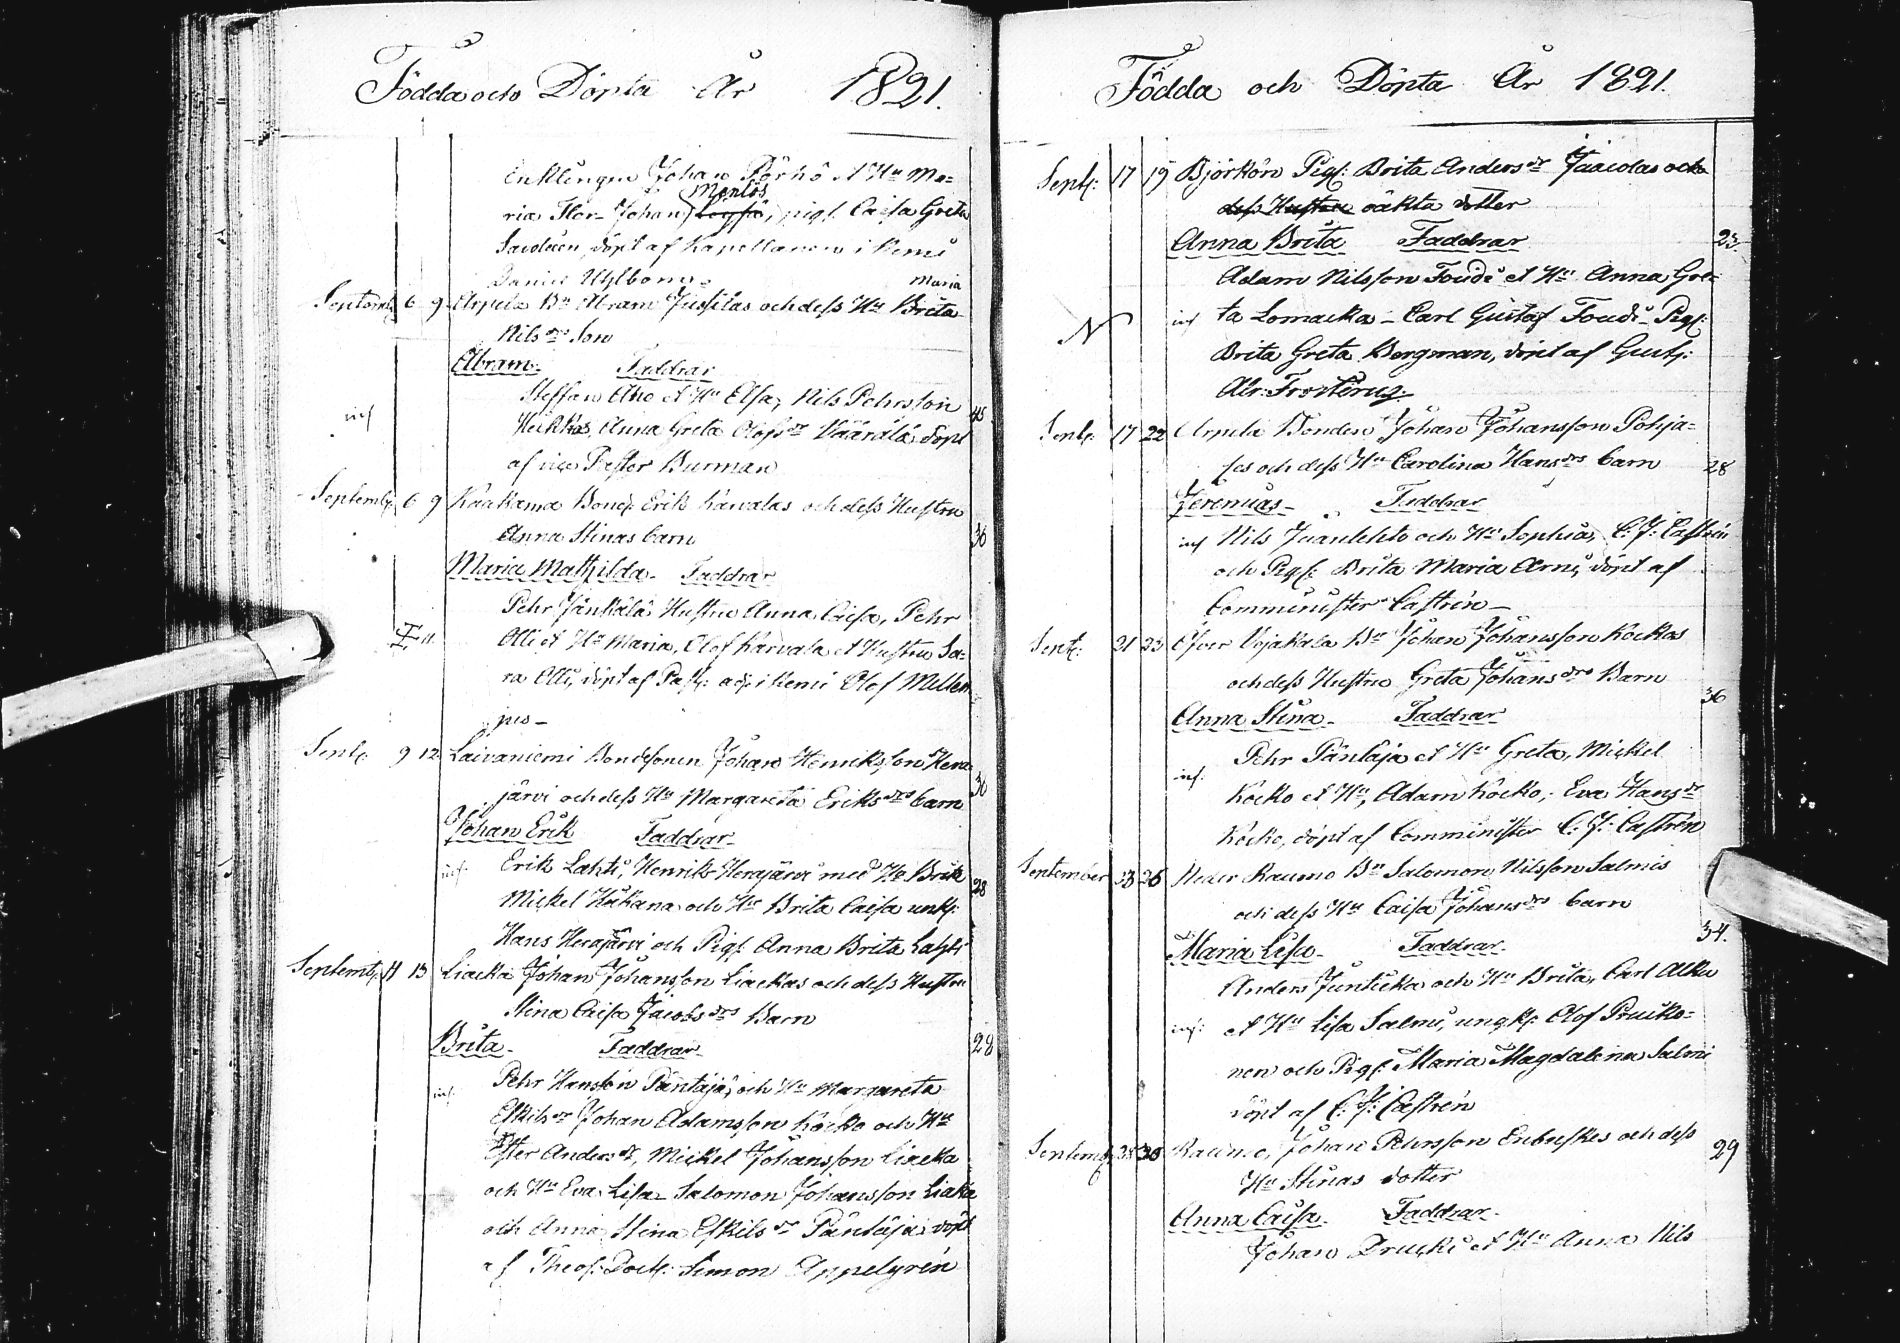 Födda och Döpta År 1821.
Enklingen Johan Pörhö et Hu Ma=
Menlös
ria Flor- Johan pigf. Caisa Greta
döpt af Kapellanen i Kemi
Daniel Uhlbom.
Maria
Septemb. 6 9 Arpela Bn Abram Jussilas och dess Hu Brita
Nils drs Son
Abram. Faddrar
Steffan Aho et Hu Elsa, Nils Pehrsson
45
inf Heikkas, Anna Greta Olofs dr Väärälä döpt
af vice Pastor Burman
Septemb. 6 9 Kaakama Bond. Erik Karvalas och dess Hustru
Anna Stinas barn
36
Maria Mathilda. Faddrar
Pehr Jänkälä Hustru Anna Caisa, Pehr
Olli et Hu Maria, Olof Karvala et Hustru Sa=
ra Olli, döpt af Past. adj. i Kemi Olof Mellen
jus –
Sept. 9 12 Laivaniemi Bondesonen Johan Henriksson Hera
järvi och dess Hu Margareta Eriks drs barn
30
Johan Erik Faddrar
inf. Erik Lahti, Henrik Herajärvi med Hu Brita
28
Mickel Hakana och Hu Brita Caisa unk.
Hans Herajärvi och Pigf. Anna Brita Lahti
Septemb. 11 13 Liacka Johan Johansson Liackas och dess Hustru
Stina Caisa Jacobs drs Barn
Brita. Faddrar
28
inf. Pehr Hansson Päntäjä, och Hu Margareta
Eskils dr Johan Adamsson Kocko och Hu
Ester Anders dr, Mickel Johansson Liacka
och Hu Eva Lisa Salomon Johansson Liaka
och Anna Stina Eskils dr Päntäjä döpt
af Theol. Doct. Simon Appelgrén
Födda och Döpta År 1821.
Sept. 17 19 Björkön Pigf. Brita Anders dr Jaacolas och
dess Hustru oäkta dotter
Anna Brita Faddrar
23.
Adam Nilsson Toudi et Hu Anna Gre=
N inf ta Lomacka – Carl Gustaf Toudi – Pigf.
Brita Greta Bergman, döpt af Gust.
Adr. Frosterus.
Sept. 17 22 Arpela Bonden Johan Johansson Pohja=
ses och dess Hu Carolina Hans drs barn
28
Jeremias – Faddrar
inf Nils Juanlehto och Hu Sophia, C. J. Castrén
och Pigf. Brita Maria Arni, döpt af
Comminister Castrén –
Sept. 21 23 Öfver Vojakala Bn Johan Johansson Kockos
och dess Hustru Greta Johans drs Barn
36
Anna Stina – Faddrar
inf. Pehr Päntäjä et Hu Greta, Mickel
Kocko et Hu, Adam Kocko, Eva Hans dr
Kocko, döpt af Comminister C. J. Castrén
September 23 26 Neder Raumo Bn Salomon Nilsson Salmis
och dess Hu Caisa Johans drs barn
34.
Maria Lisa – Faddrar.
Anders Junticka och Hu Brita, Carl Alku
inf. et Hu Lisa Salmi, ungk. Olof Pruiko=
nen och Pigf. Maria Magdalena Salmi
döpt af C. J. Castrén
Septemb. Raumo, Johan Petersson Enbuskes och dess
29
Hu Stinas dotter
Anna Caisa. Faddrar.
Johan Drucki et Hu Anna Nils